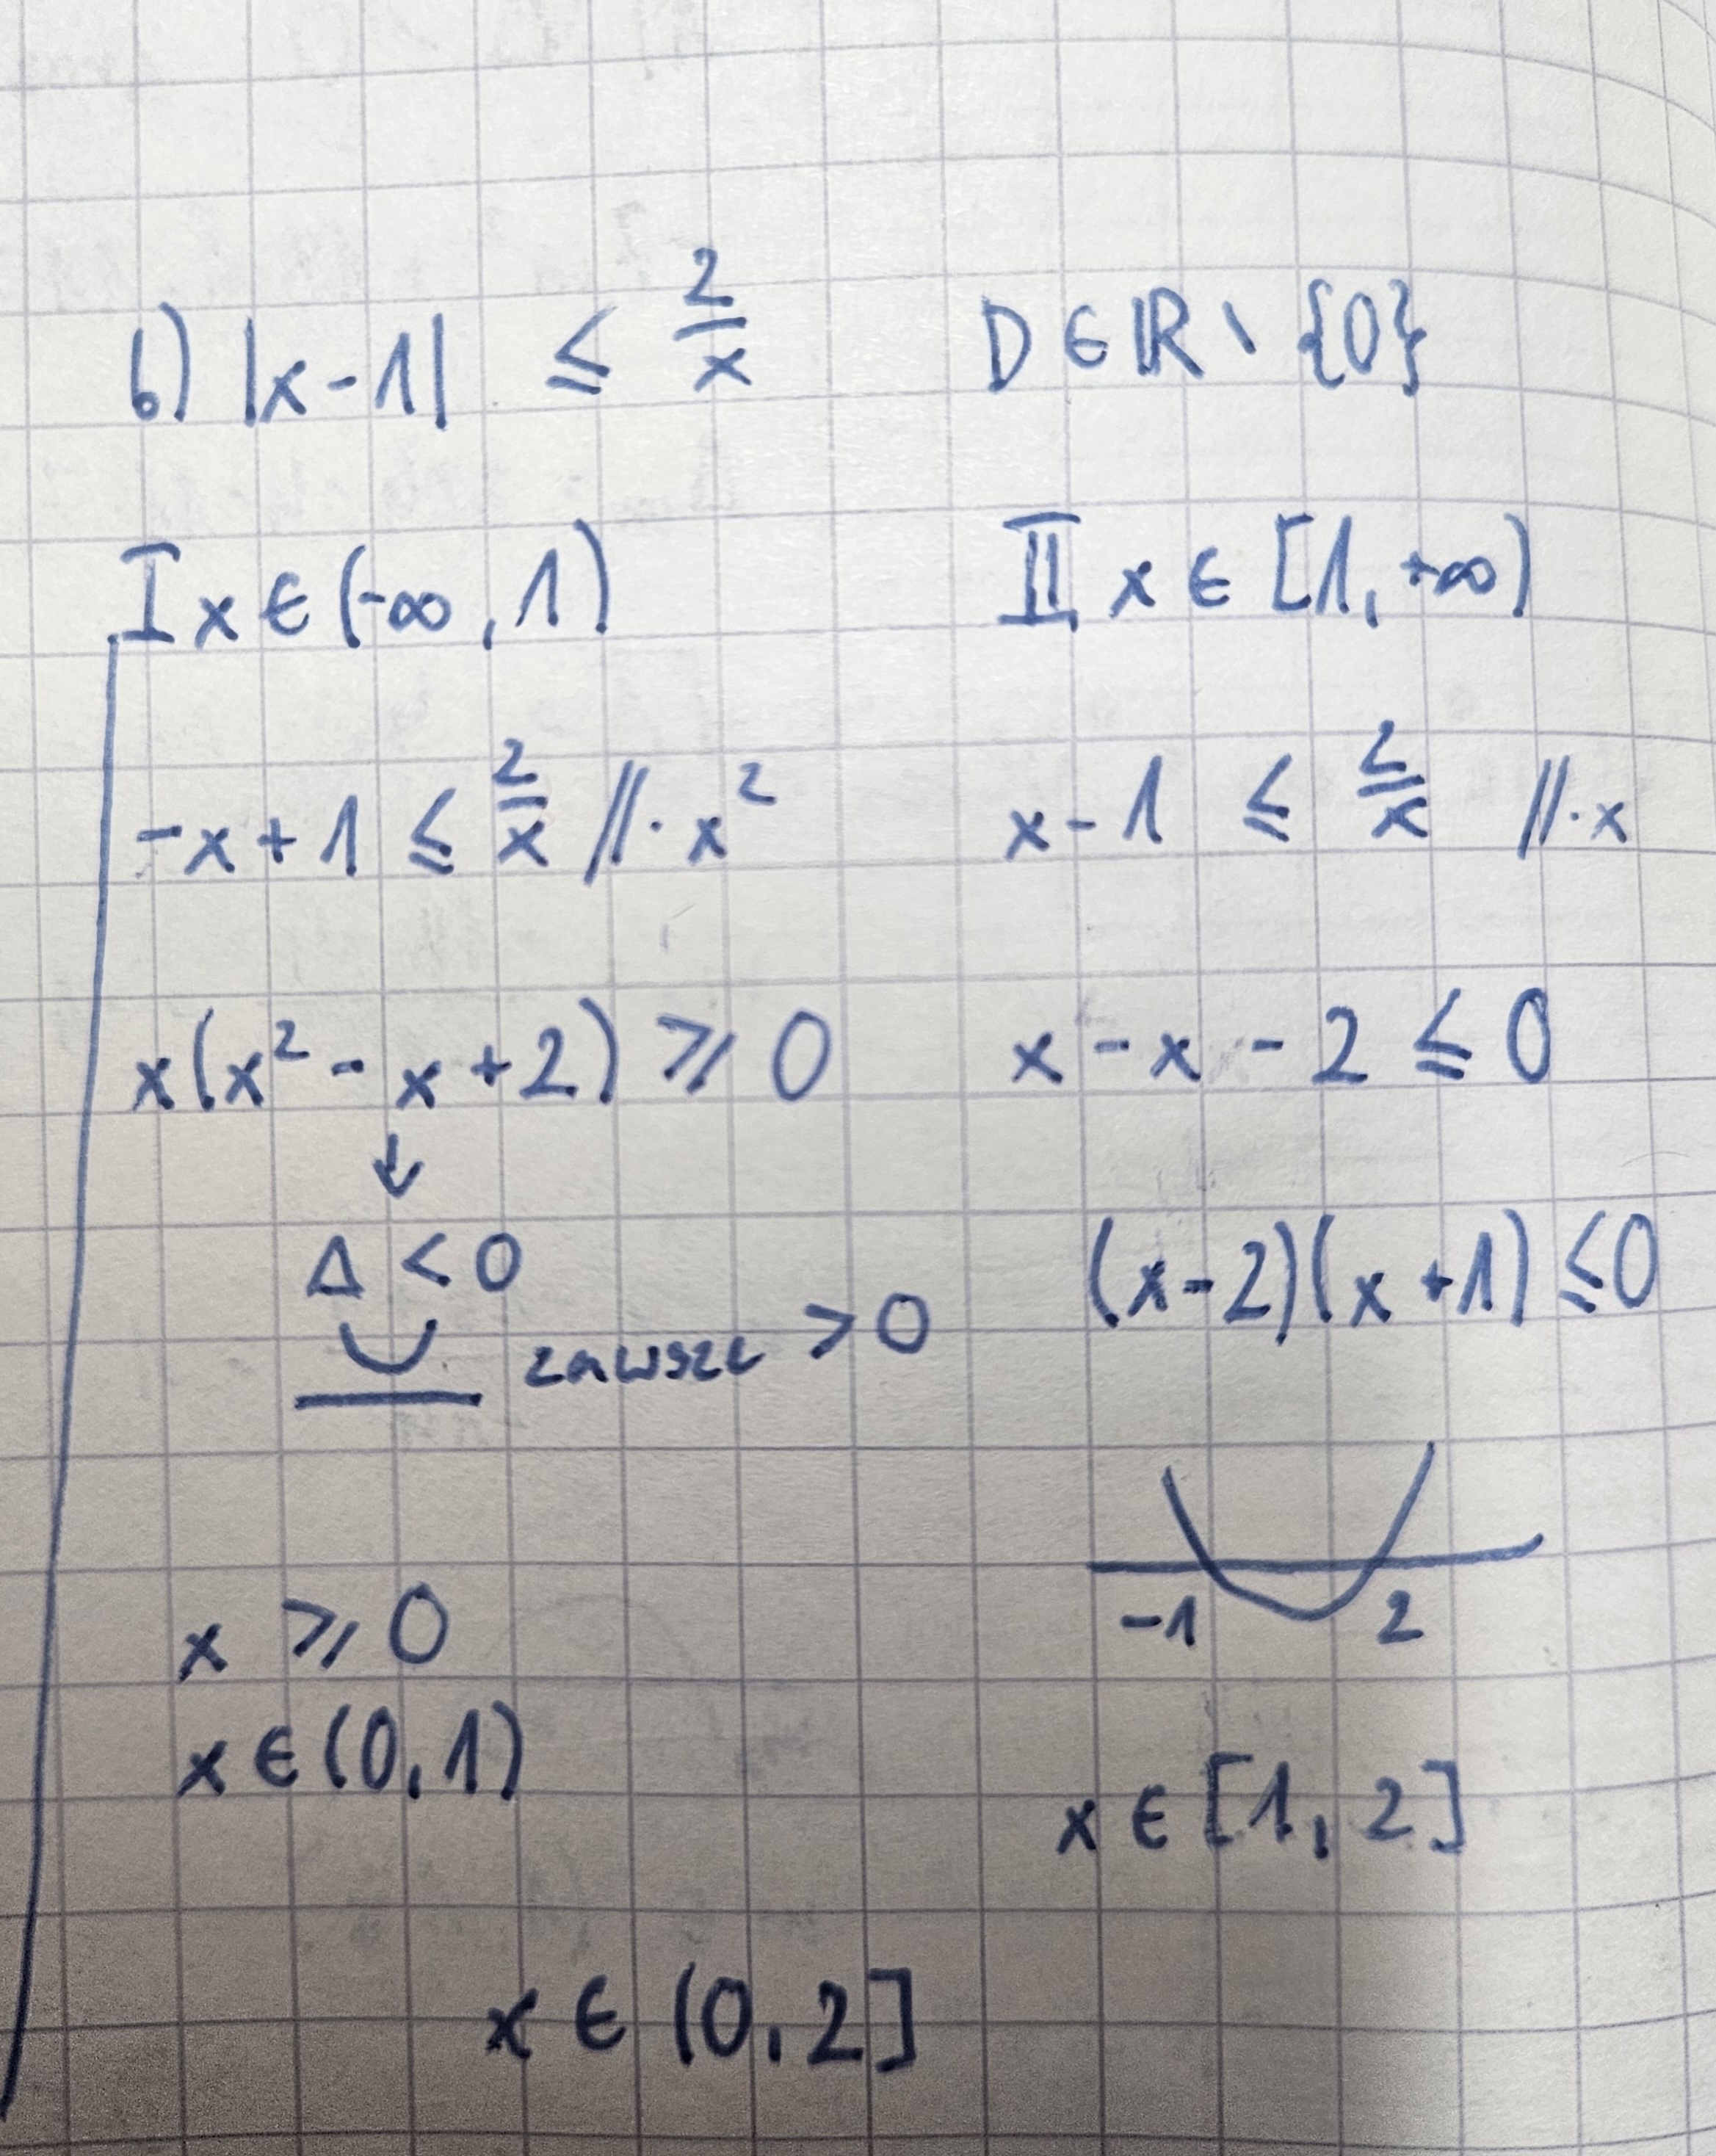 b) |x-1| ≤ 2/x D ∈ ℝ \ {0}
I x ∈ (-∞, 1)
-x + 1 ≤ 2/x //· x²
x(x² - x + 2) ≥ 0
↓
Δ < 0
zawsze > 0
x ≥ 0
x ∈ (0, 1)
II x ∈ [1, +∞)
x - 1 ≤ 2/x //· x
x - x - 2 ≤ 0
(x-2)(x+1) ≤ 0
-1 2
x ∈ [1, 2]
x ∈ (0, 2]